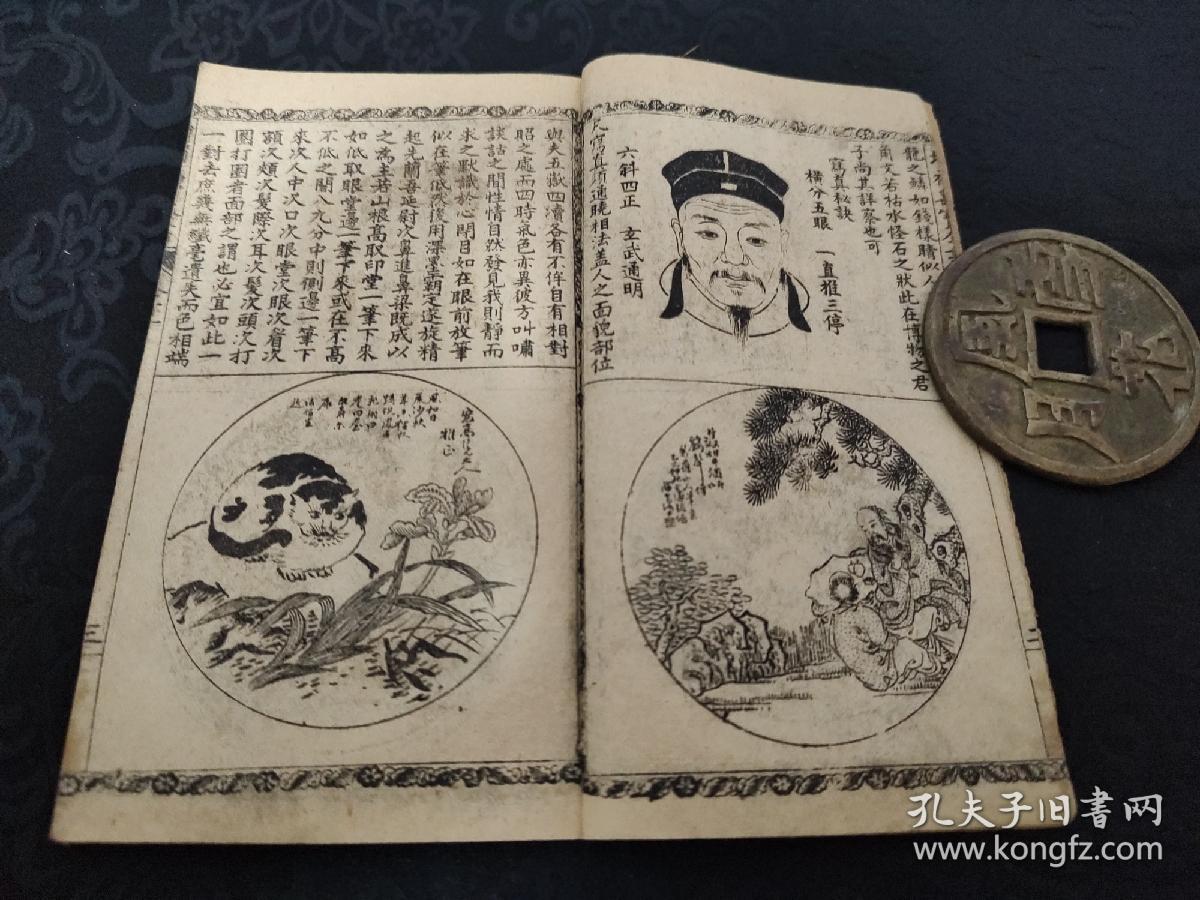 龍之鱗如錢樣睛似人
角文若枯水怪石之狀此在博物之君
子尚其詳察也可
寫真秘訣
橫分五眼　一直推三停
六斜四正　玄武通明
凡寫真須通曉相法蓋人之面貌部位
與夫五嶽四瀆各有不侔自有相對
昭之處而四時氣色亦異彼方叫嘯
談話之間性情自然發見我則靜而
求之默識於心閉目如在眼前放筆
似在筆低然後用深墨霸定遂旋精
起先蘭吾延尉次鼻進鼻梁既成以
之為主若山根高取印堂一筆下來
如低取眼堂邊一筆下來或在不高
不低之間八九分中則側邊一筆下
來次人中次口次眼堂次眼次眉次
額次頰次髮際次耳次髮次頭次打
圈打圈者面部之謂也必宜如此一
一對去庶幾無纖毫遺失而色相端
二
三
孔夫子旧书网
www.kongfz.com